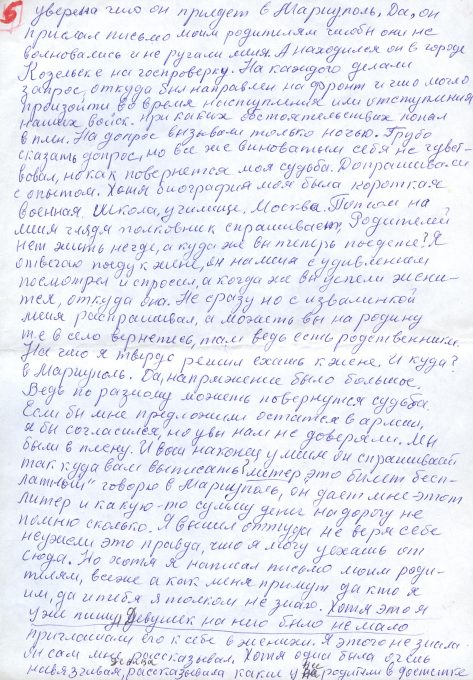 5
уверена что он приедет в Мариуполь, Да, он
прислал письмо моим родителям чтобы они не
волновались и не ругали меня. А находился он в городе
Козельске на госпроверку. На каждого делали
запрос, откуда был направлен на фронт и что могло
произойти во время наступления или отступления
наших войск. При каких обстоятельствах попал
в плен. На допрос вызывали только ночью. Грубо
сказать допрос, но все же виноватым себя не чувст-
вовал, но как повернется моя судьба. Допрашивали
с опытом. Хотя биография моя была короткая
военная. Школа, училище, Москва. Потом на
меня глядя полковник спрашивает, Родителей
нет жить негде, а куда же вы теперь поедете? Я
отвечаю поеду к жене, он на меня с удивлением
посмотрел и спросил, а когда же вы успели жени-
тся, откуда она. Не сразу но с извалинкой
меня распрашивал, а можеть вы на родину
те в село вернетись, там ведь есть родственники.
На что я твердо решил ехать к жене. И куда?
в Мариуполь. Да, напряжение было большое,
Ведь по разному можеть повернутся судьба
Если бы мне предложили остатся в армии,
я бы согласился, но увы нам не доверяли. Мы
были в плену. И вот наконец у меня он спрашивает
так куда вам выписать? литер, это билет бесп-
латный" говорю в Мариуполь, он дает мне этот
литер и какую-то сумму денег на дорогу не
помню сколько. Я вышел оттуда не веря себе
неужели это правда, что я могу уехать от
сюда. Но хотя я написал письмо моим роди-
телям, все же а как меня примут да кто я
им, да и тебя я толком не знаю. Хотя это я
уже пишу девушек на него было не мало
приглашали его к себе в женихи. Я этого не знала
он сам мне рассказывал. Хотя одна была очень
навязчивая, рассказывала каким у родители в достатке